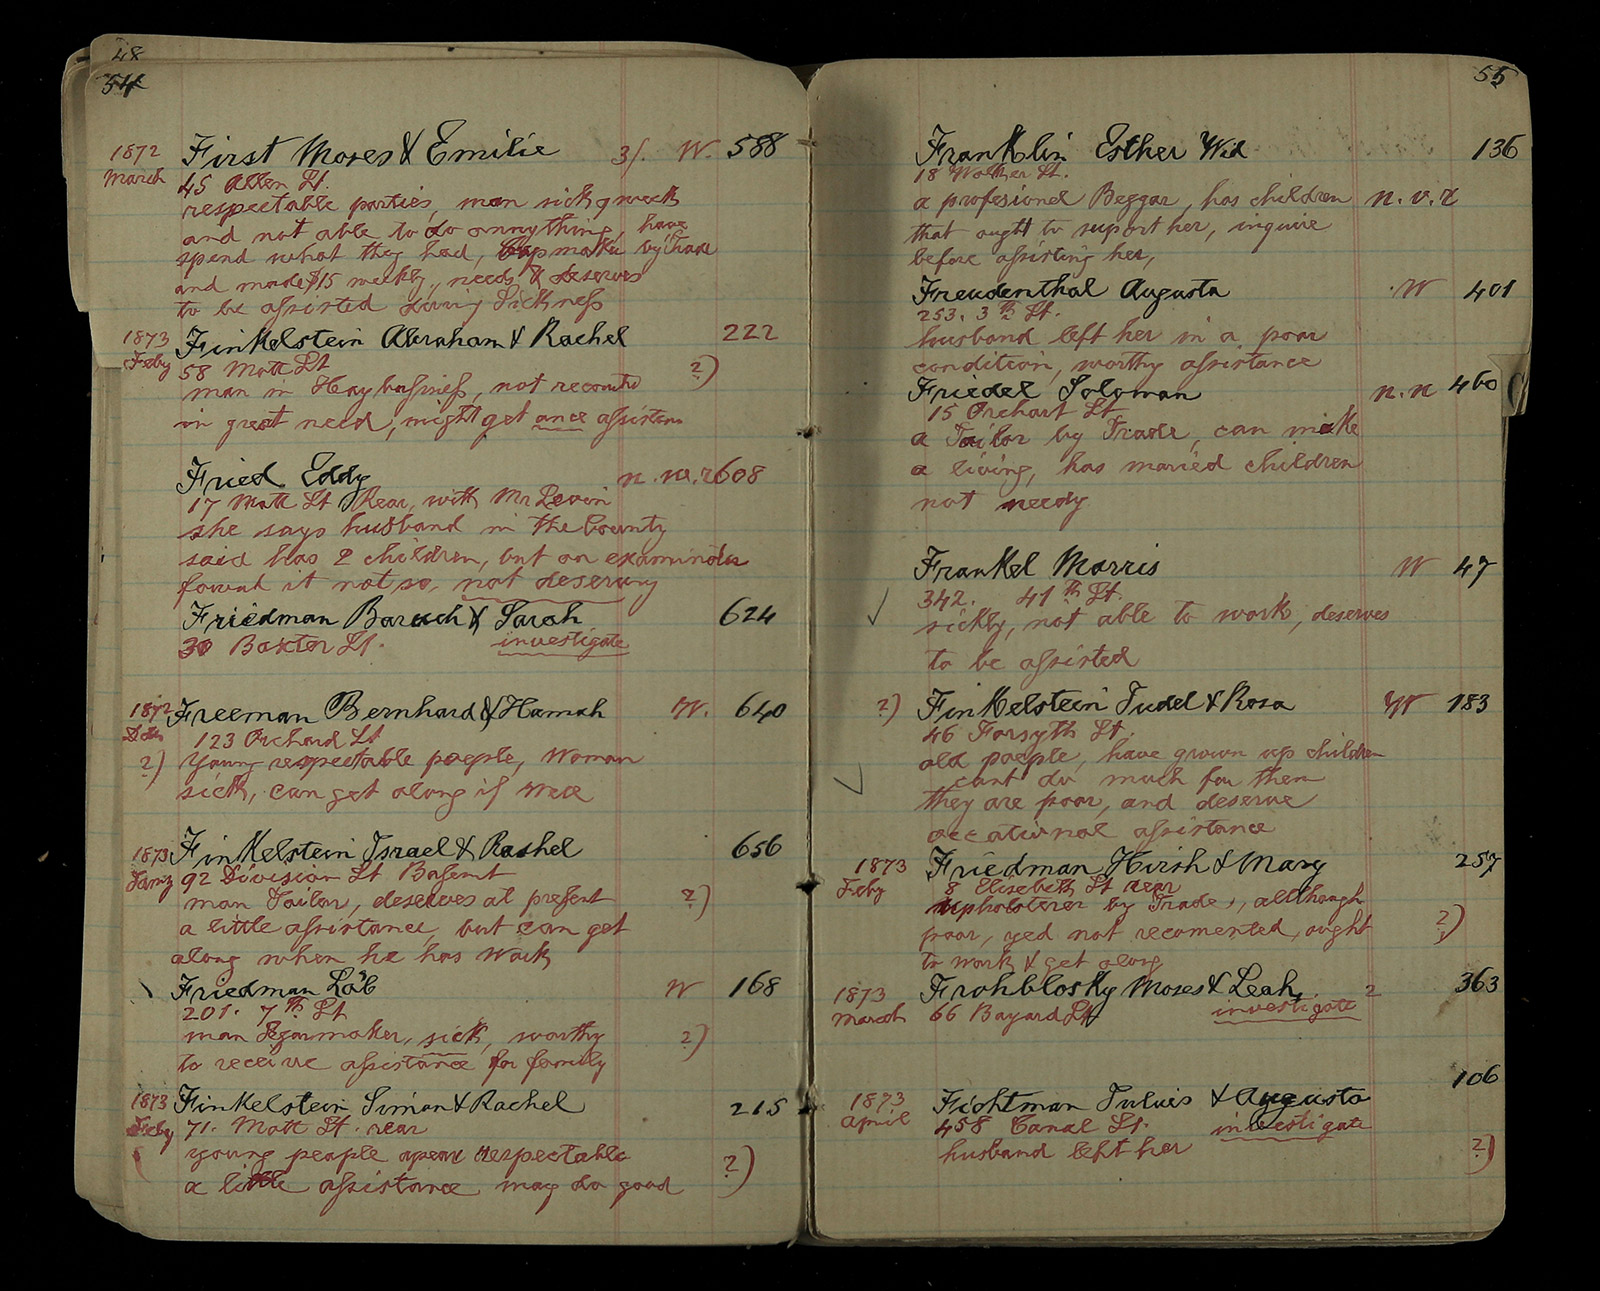 48
54
1872 First Moses & Emilie 3/. W. 588
March 45 Allen St.
respectable parties, man sick 9 week
and not able to do annything, have
spend what they had, Capmaker by Trade
and made $15 weekly, needs & deserves
to be assisted during Sickness
1873 Finkelstein Abraham & Rachel 222
Feby 58 Mott St ?)
man in Hay bussness, not recomtd
in great need, might get once assistan
Fried Eddy n. w. r 608
17 Mott St Rear, with Mr Levin
she says husband in the County
said has 2 children, but on examination
fownd it not so, not deserving
Friedman Baruch & Sarah 624
30 Baxter St. investigate
1872 Freeman Bernhard & Hannah W. 640
Dec 123 Orchard St
?) Young respectable people, Woman
sick, can get along if well
Finkelstein Israel & Rachel 656
1873
Jany 92 Division St Basemt
man Tailor, deserves at present ?)
a little assistance, but can get
along when he has Work
Friedman Löb W 168
201. 7th St
man Segarmaker, sick, worthy ?)
to receive assistance for family
1873 Finkelstein Simon & Rachel 215
Feby 71. Mott St. rear
young people apear respectable
a little assistance may do good ?)
55
Franklin Esther Wid 136
18 St.
a profesionel Beggar, has children n. v. r
that ought to support her, inquire
before assisting her,
Freudenthal Augusta W 401
253. 3th St.
husband left her in a poor
condition, worthy assistance
Friedel Soloman n. n 460
15 Orchart St
a Tailor by Trade, can make
a living, has maried children
not needy
Frankel Morris W 47
342. 41th St.
sickly, not able to work, deserves
to be assisted
?) Finkelstein Judel & Rosa W 183
46 Forsyth St.
old people, have grown up children
cant do much for them
they are poor, and deserve
occational assistance
1873 Friedman Hirsh & Mary 257
Feby 8 Elisebeth St rear
Upholsterer by Trade, allthough
poor, yed not recomented, ought ?)
to work & get along
1873 Frohblosky Moses & Leah 2 363
March 66 Bayard St investigate
106
1873 Fichtman Julius & Augusta
April 458 Canal St. investigate
husband left her ?)